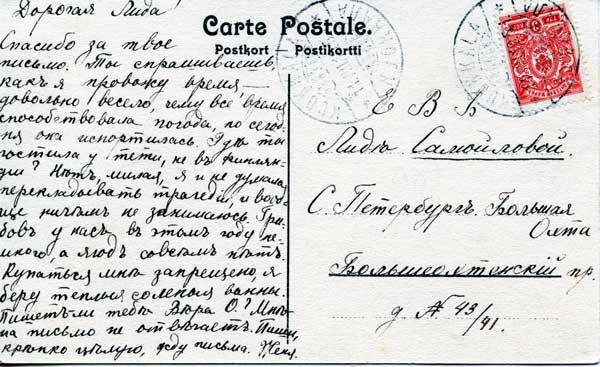 Дорогая Лида!
Спасибо за твое
письмо. Ты спрашиваешь
какъ я провожу время,
довольно весело, чему все время
способствовала погода, но сегод-
ня она испортилась. Гдѣ ты
гостила у тети, не въ Финлян-
діи? Нѣтъ, милая, я и не думала
перекладывать трагедіи, и вооб-
ще ничѣмъ не занимаюсь. Гри-
бовъ у насъ въ этомъ году не-
много, а ягодъ совсѣмъ нѣтъ.
Купаться мнѣ запрещено, я
беру теплыя соленыя ванны.
Пишетъ ли тебѣ Вѣра О.? Мнѣ
на письмо не отвѣчаетъ. Пиши,
крѣпко цѣлую, жду письма. Женя.
Carte Postale.
Postkort — Postikortti
Е В Б
Лидіи Самойловой.
С. Петербургъ. Большая
Охта
Большеохтенскій пр.
д № 43/41.